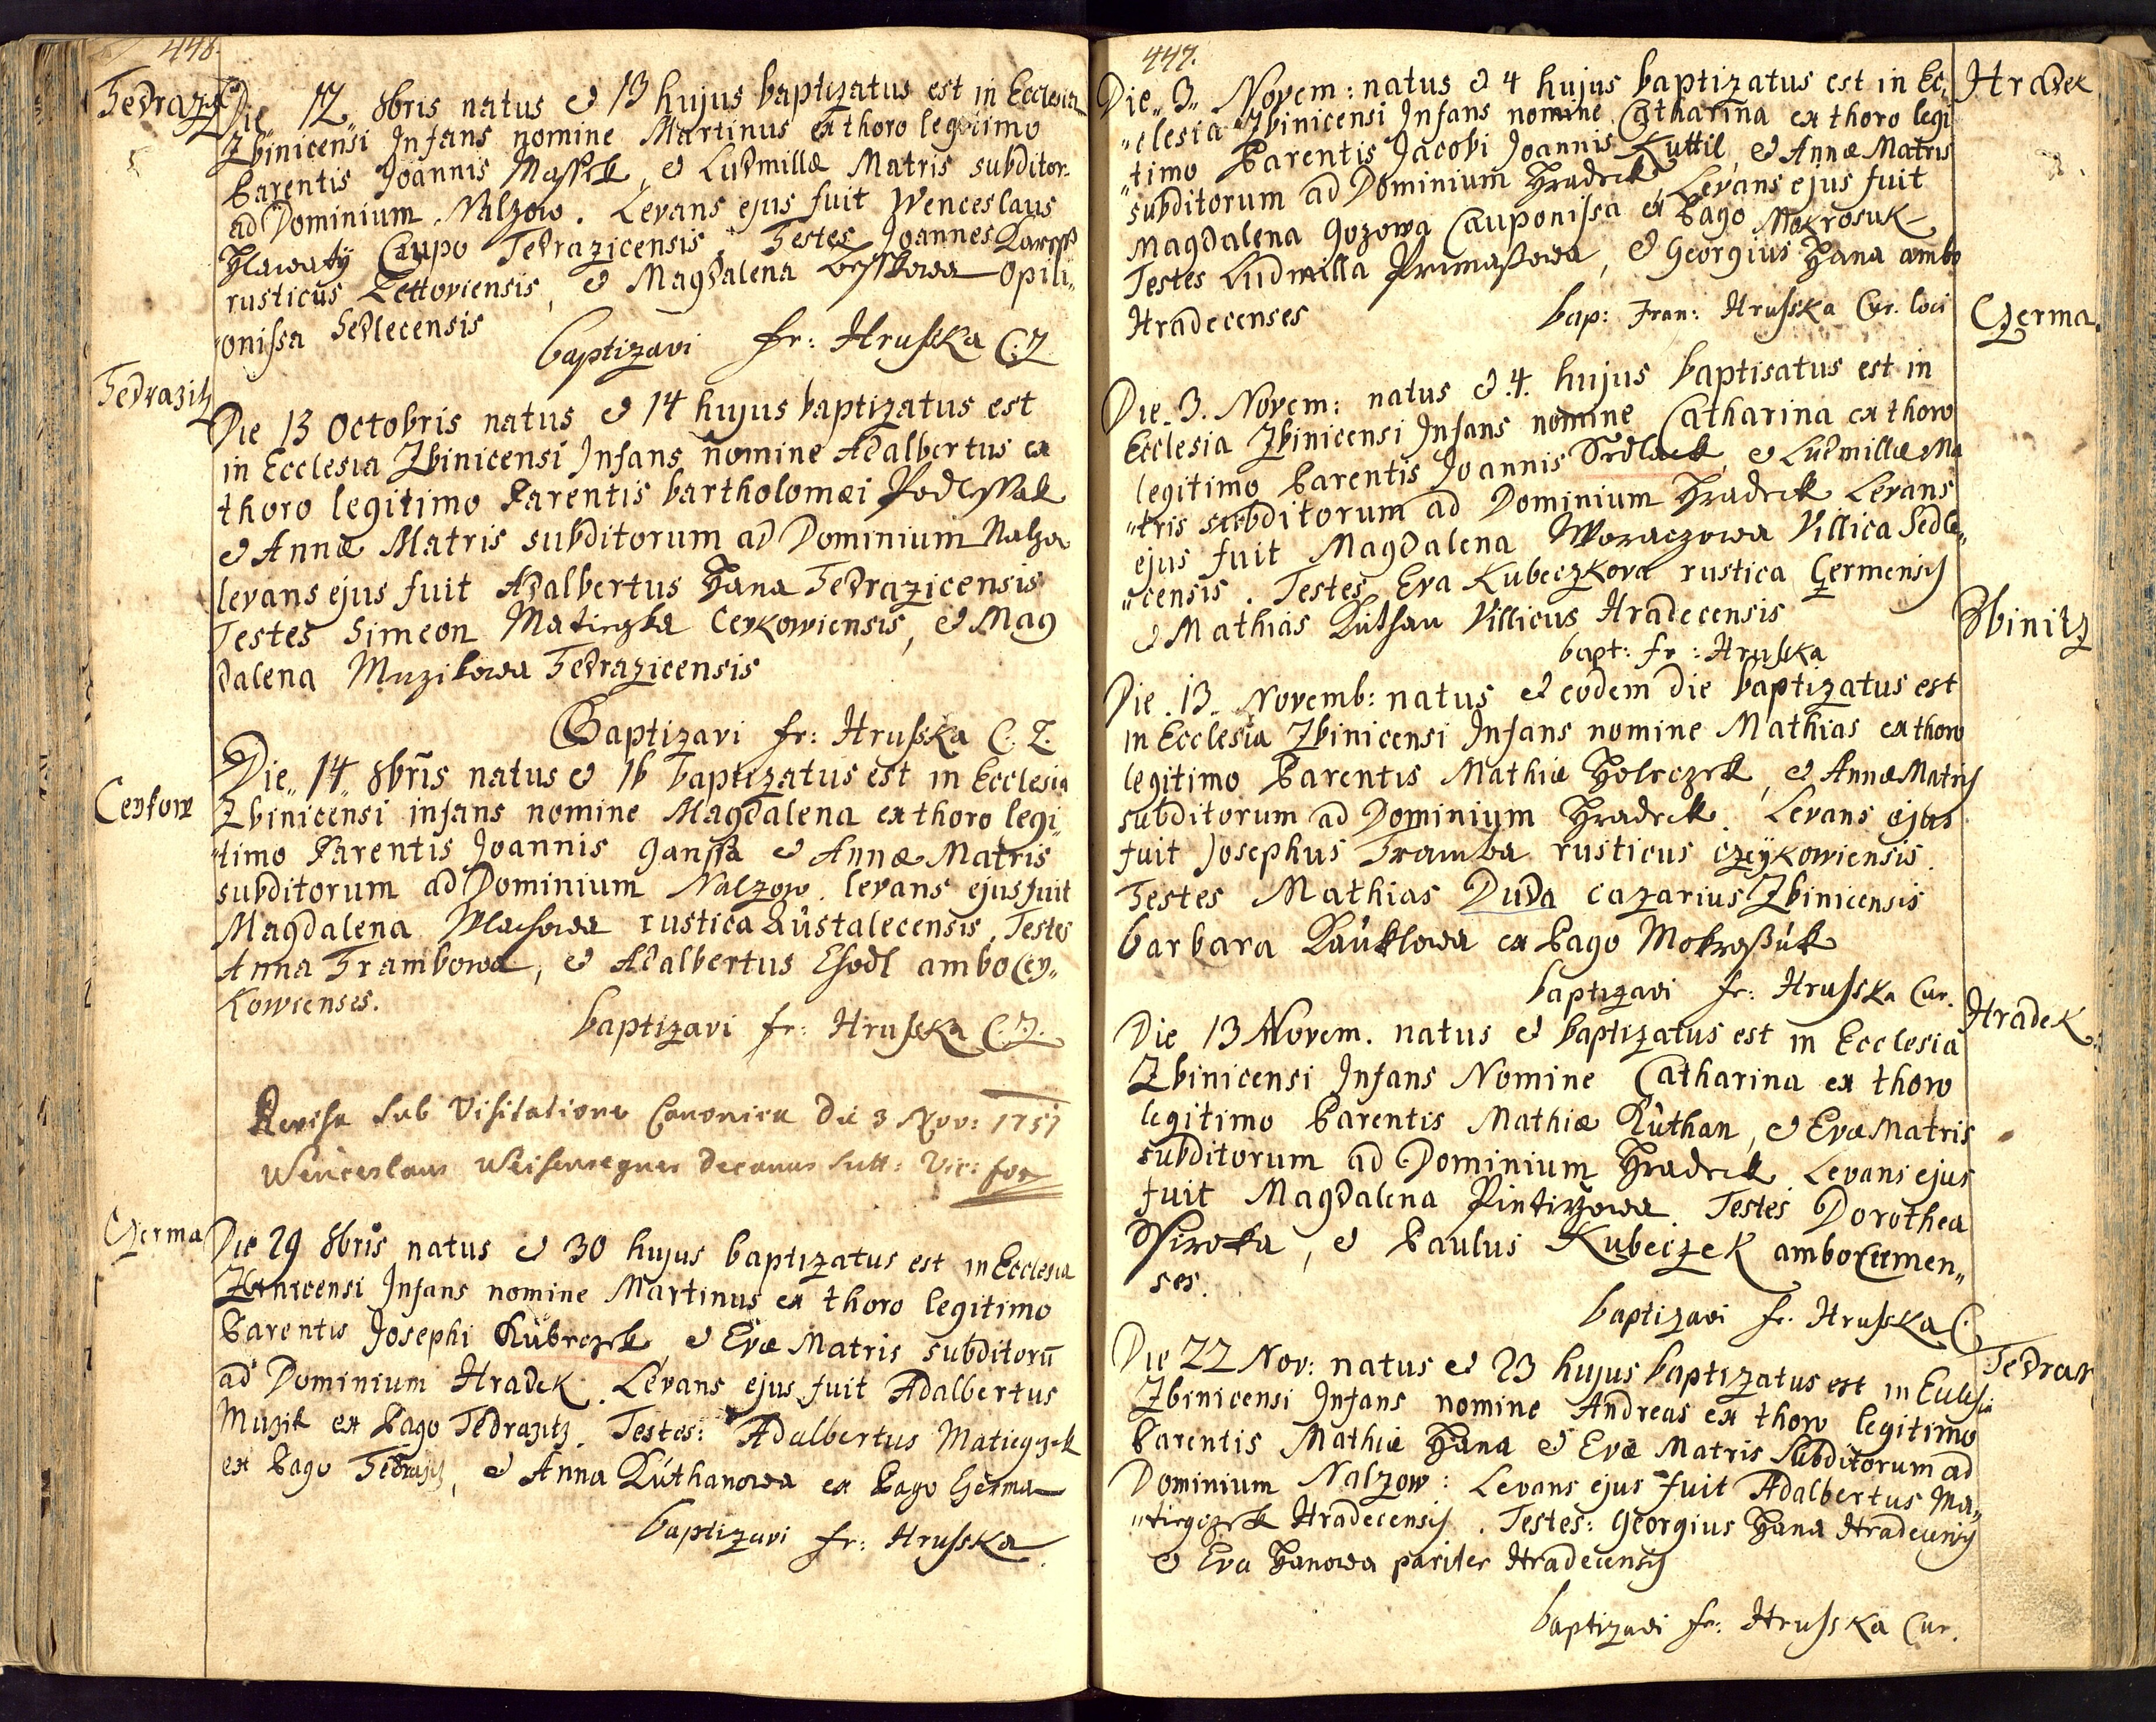 448.
Tedrazicz
Die 12 8bris natus & 13 hujus baptizatus est in Ecclesia
Zbinicensi Infans nomine Martinus ex thoro legitimo
Parentis Joannis Massek, & Ludmillæ Matris subditor.
ad Dominium Nalzow. Levans ejus fuit Wenceslaus
Hlawaty Caupo Tedrazicensis, Testes Joannes
rusticus Lettoviensis, & Magdalena Opili„
„onissa Sedlecensis
baptizavi fr: Hrusska C. Z.
Tedrazitz
Die 13 Octobris natus & 14 hujus baptizatus est
in Ecclesia Zbinicensi Infans nomine Adalbertus ex
thoro legitimo Parentis bartholomæi Podlessak
& Annæ Matris subditorum ad Dominium Nalzo
levans ejus fuit Adalbertus Hana Tedrazicensis
Testes Simeon Matiegka Ceykowiensis, & Mag
dalena Muzikowa Tedrazicensis
Baptizavi fr: Hrusska C. Z.
Ceykow
Die„ 14„ 8bris natus & 16 baptizatus est in Ecclesia
Zbinicensi infans nomine Magdalena ex thoro legi„
„timo Parentis Joannis Ganssa & Annæ Matris
subditorum ad Dominium Nalzow. levans ejus fuit
Magdalena Wlachowa rustica Kustalecensis. Testes
Anna Trambowa, & Adalbertus Chodl ambo Cey„
kowienses.
baptizavi fr: Hrusska C. Z.
Revisa sub Visitatione Canonica die 3 Nov: 1751
Wenceslaus Decanus Sutt: Vic: for
Czerma
Die 29 8bris natus & 30 hujus baptizatus est in Ecclesia
Zbinicensi Infans nomine Martinus ex thoro legitimo
Parentis Josephi Kubeczek, & Evæ Matris subditorū
ad Dominium Hradek. Levans ejus fuit Adalbertus
Muzik ex Pago Tedrazitz. Testes: Adalbertus Matiegzek
ex Pago Tedrazitz, & Anna Kuthanowa ex Pago Czerma
baptizavi fr: Hrusska
447.
Hradek
Die„ 3„ Novem: natus & 4 hujus baptizatus est in Ec„
„clesia Zbinicensi Infans nomine Catharina ex thoro legi
„timo Parentis Jacobi Joannis Kuttil, & Annæ Matris
subditorum ad Dominium Hradek, Levans ejus fuit
Magdalena Gozowa Cauponissa ex Pago Mokrosuk
Testes Ludmilla Primassowa, & Georgius Hana ambo
Hradecenses
bap: Fran: Hrusska Cur. loci
Czerma
Die. 3. Novem: natus & .4. hujus baptisatus est in
Ecclesia Zbinicensi Infans nomine Catharina ex thoro
legitimo Parentis Joannis Sedlaek, & Ludmillæ Ma
„tris subditorum ad Dominium Hradek Levans
ejus fuit Magdalena Woraczowa Villica Sedle„
„censis. Testes Eva Kubeczkova rustica Czermensis
& Mathias Kuthan Villicus Hradecensis
bapt: fr: Hrusska
Zbinitz
Die. 13. Novemb: natus & eodem die baptizatus est
in Ecclesia Zbinicensi Infans nomine Mathias ex thoro
legitimo Parentis Mathiæ Holeczek, & Annæ Matris
subditorum ad Dominium Hradek. Levans ejus
fuit Josephus Tramba rusticus Czeykowiensis.
Testes Mathias Duda cazarius Zbinicensis
barbara Kauklowa ex Pago Mokrossuk
baptizavi fr: Hrusska Cur.
Hradek
Die 13 Novem. natus & baptizatus est in Ecclesia
Zbinicensi Infans Nomine Catharina ex thoro
legitimo Parentis Mathiæ Kuthan, & Evæ Matris
subditorum ad Dominium Hradek. Levans ejus
fuit Magdalena Pintirzowa. Testes Dorothea
Ssiroka, & Paulus Kubeczek ambo Czermen„
ses.
baptizavi fr. Hrusska C.
Tedraz
Die 22 Nov: natus & 23 hujus baptizatus est in Eclesia
Zbinicensi Infans nomine Andreas ex thoro legitimo
Parentis Mathiæ Hana & Evæ Matris Subditorum ad
Dominium Nalzow: Levans ejus fuit Adalbertus Ma„
„tiegczek Hradecensis. Testes: Georgius Hana Hradecensis
& Eva Hanowa pariter Hradecensis
baptizavi fr: Hrusska Cur.